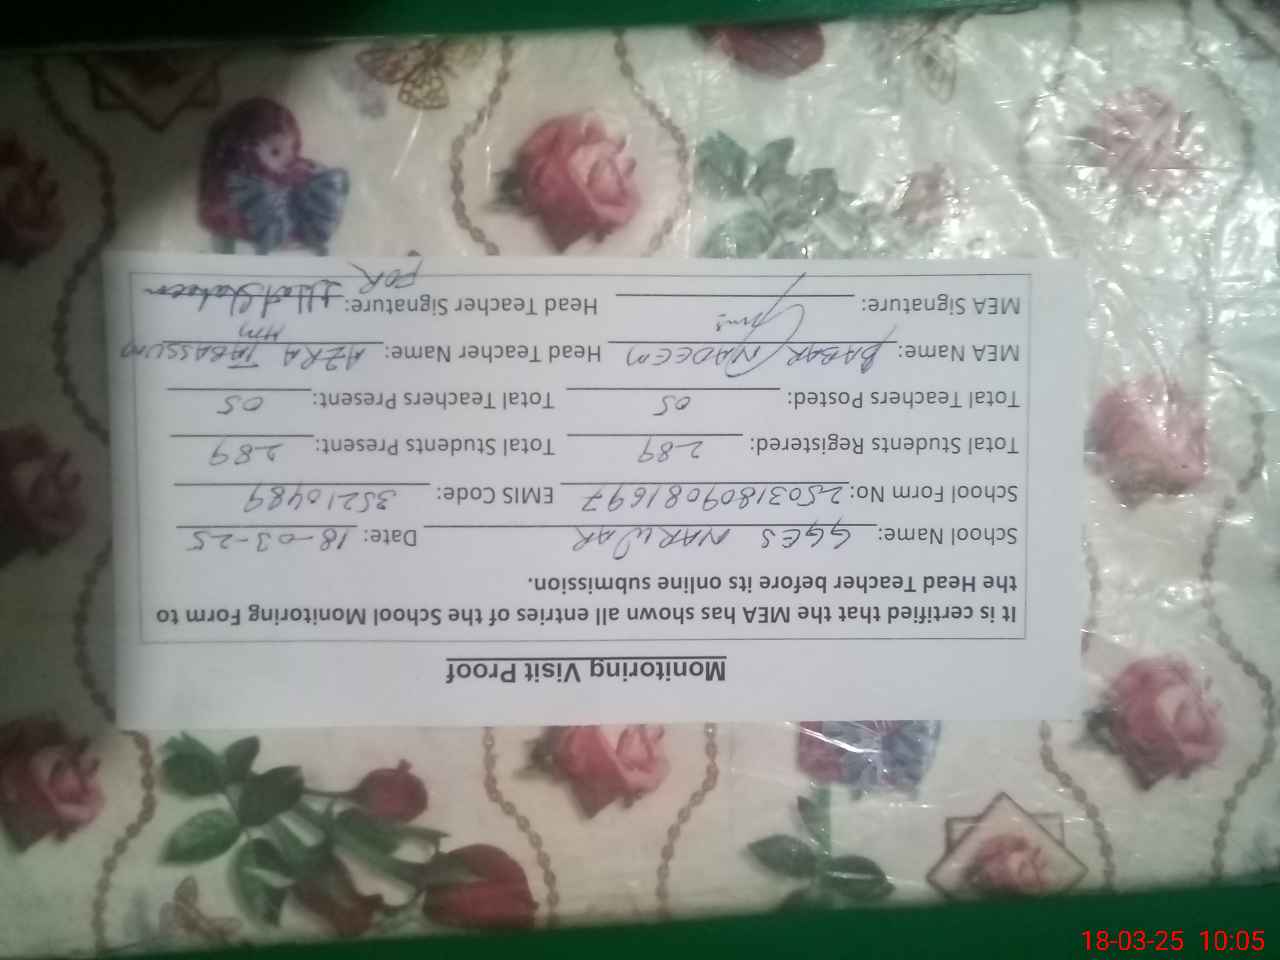 Monitoring Visit Proof
It is certified that the MEA has shown all entries of the School Monitoring Form to
the Head Teacher before its online submission.
School Name: GGES NARWAR Date: 18-03-25
School Form No: 25031809081697 EMIS Code: 35210489
Total Students Registered: 289 Total Students Present: 289
Total Teachers Posted: 05 Total Teachers Present: 05
MEA Name: BABAR NADEEM Head Teacher Name: AZRA TABASSUM
HM
MEA Signature: Head Teacher Signature:
FOR
18-03-25 10:05